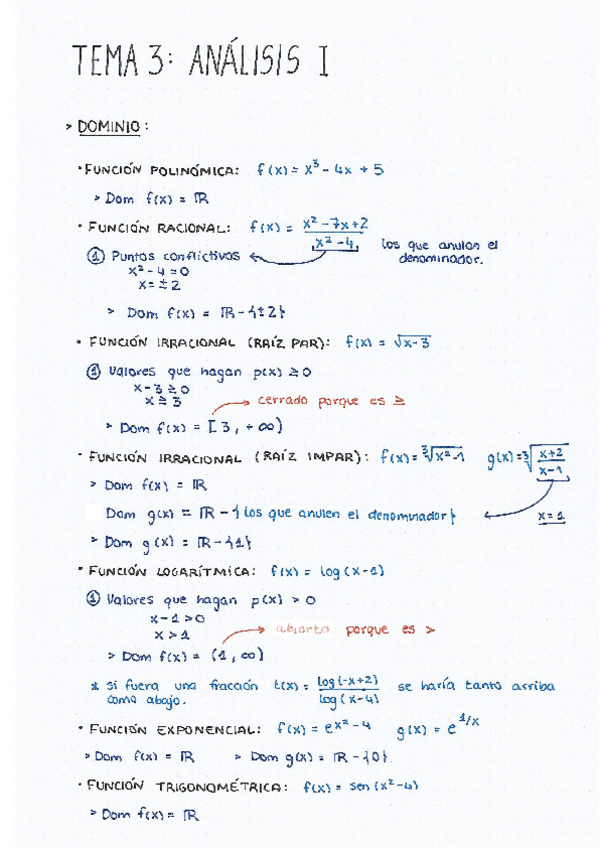 TEMA 3: ANÁLISIS I
> DOMINIO:
· FUNCIÓN POLINÓMICA: f(x) = x³ - 4x + 5
> Dom f(x) = ℝ
· FUNCIÓN RACIONAL: f(x) = (x² - 7x + 2)/(x² - 4) los que anulan el denominador.
① Puntos conflictivos
x² - 4 = 0
x = ± 2
> Dom f(x) = ℝ - {±2}
· FUNCIÓN IRRACIONAL (RAÍZ PAR): f(x) = √(x-3)
① Valores que hagan p(x) ≥ 0
x - 3 ≥ 0
x ≥ 3 → cerrado porque es ≥
> Dom f(x) = [3, +∞)
· FUNCIÓN IRRACIONAL (RAÍZ IMPAR): f(x) = ∛(x²-1) g(x) = ∛((x+2)/(x-1))
> Dom f(x) = ℝ
Dom g(x) = ℝ - {los que anulen el denominador} x = 1
> Dom g(x) = ℝ - {1}
· FUNCIÓN LOGARÍTMICA: f(x) = log(x-1)
① Valores que hagan p(x) > 0
x - 1 > 0
x > 1 → abierto porque es >
> Dom f(x) = (1, ∞)
* si fuera una fracción t(x) = log(-x+2)/log(x-4) se haría tanto arriba
como abajo.
· FUNCIÓN EXPONENCIAL: f(x) = e^(x² - 4) g(x) = e^(1/x)
> Dom f(x) = ℝ > Dom g(x) = ℝ - {0}.
· FUNCIÓN TRIGONOMÉTRICA: f(x) = sen(x²-4)
> Dom f(x) = ℝ